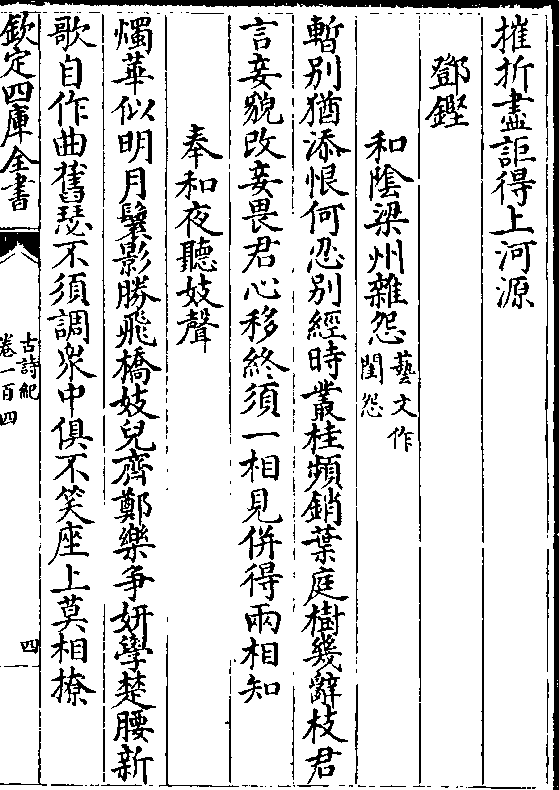 摧折盡詎得上河源
鄧鏗
和陰梁州雜怨藝文作閨怨
暫别猶添恨何忍别經時叢桂頻銷葉庭樹幾辭枝君
言妾貌改妾畏君心移終須一相見併得兩相知
奉和夜聽妓聲
燭華似明月鬟影勝飛橋妓兒齊鄭樂争妍學楚腰新
歌自作曲舊瑟不須調衆中俱不笑座上莫相撩
欽定四庫全書
古詩紀
卷一百四
四